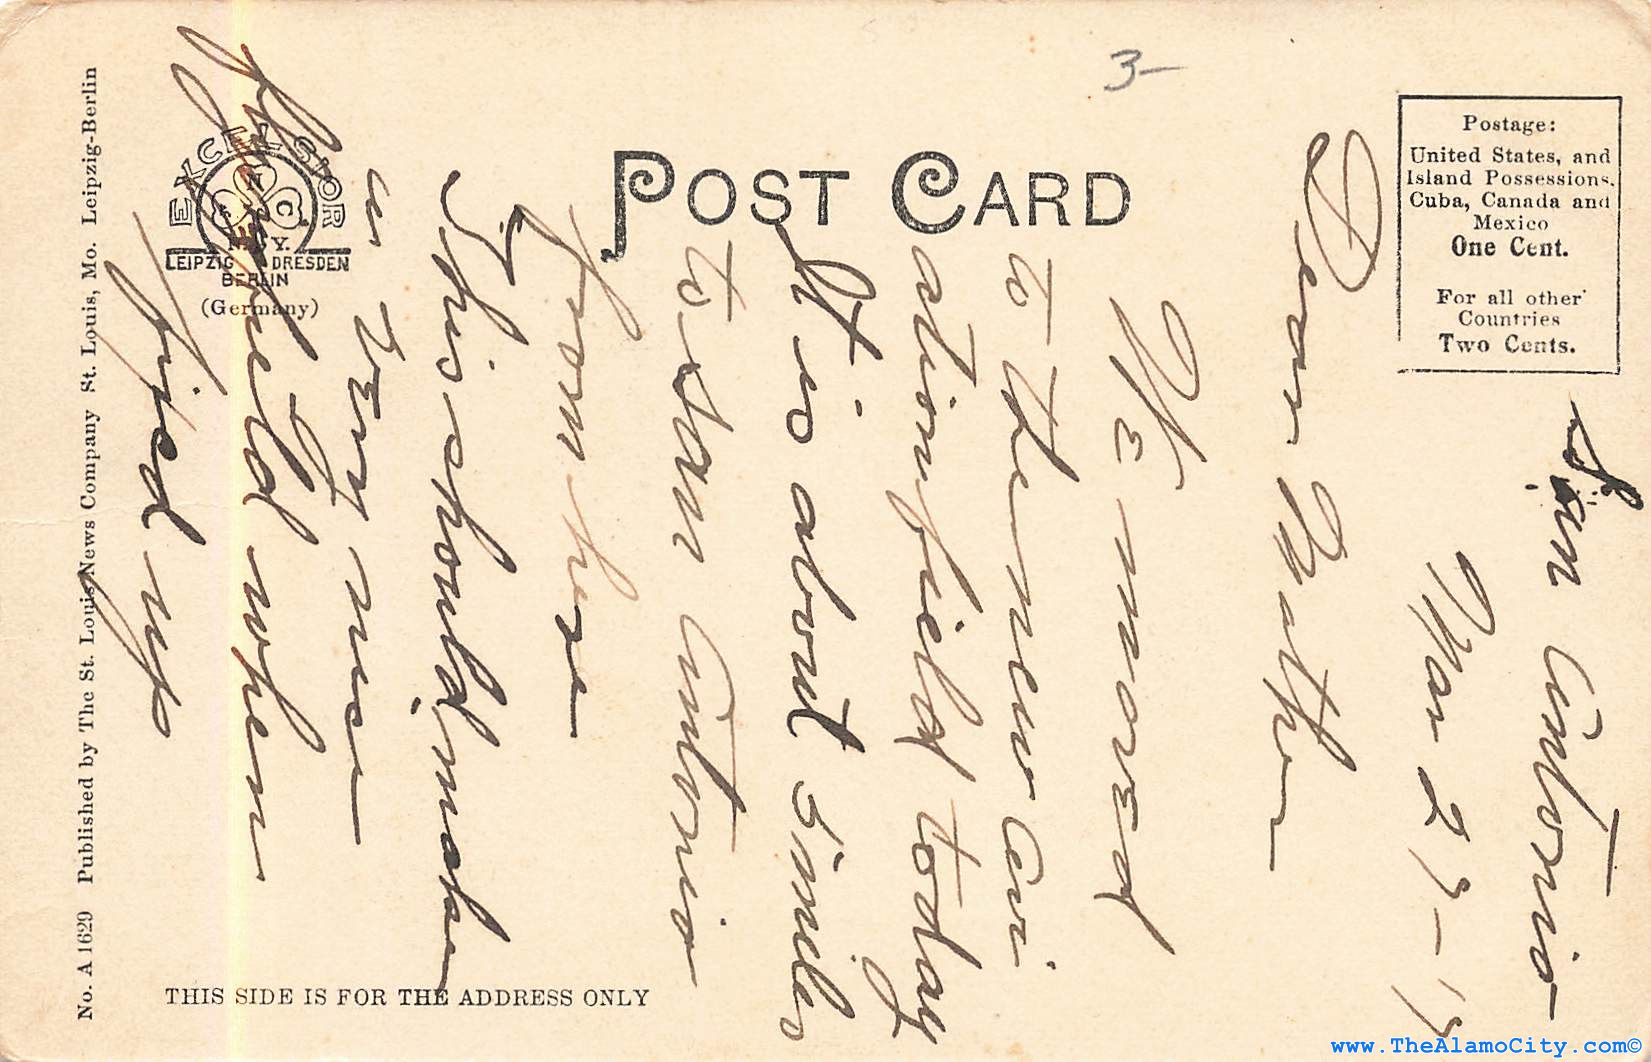 San Antonio
Mar
Dear Mother
We moved
to the new Avi
ation field today
It is about 5 miles
to San Antonio
from here
This should make
a very nice
field when
fixed up
3-
POST CARD
Postage:
United States, and
Island Possessions,
Cuba, Canada and
Mexico
One Cent.
For all other
Countries
Two Cents.
EXCELSIOR
N
C
N.Y.
LEIPZIG DRESDEN
BERLIN
(Germany)
No. A 1629 Published by The St. Louis News Company St. Louis, Mo. Leipzig-Berlin
THIS SIDE IS FOR THE ADDRESS ONLY
www.TheAlamoCity.com©